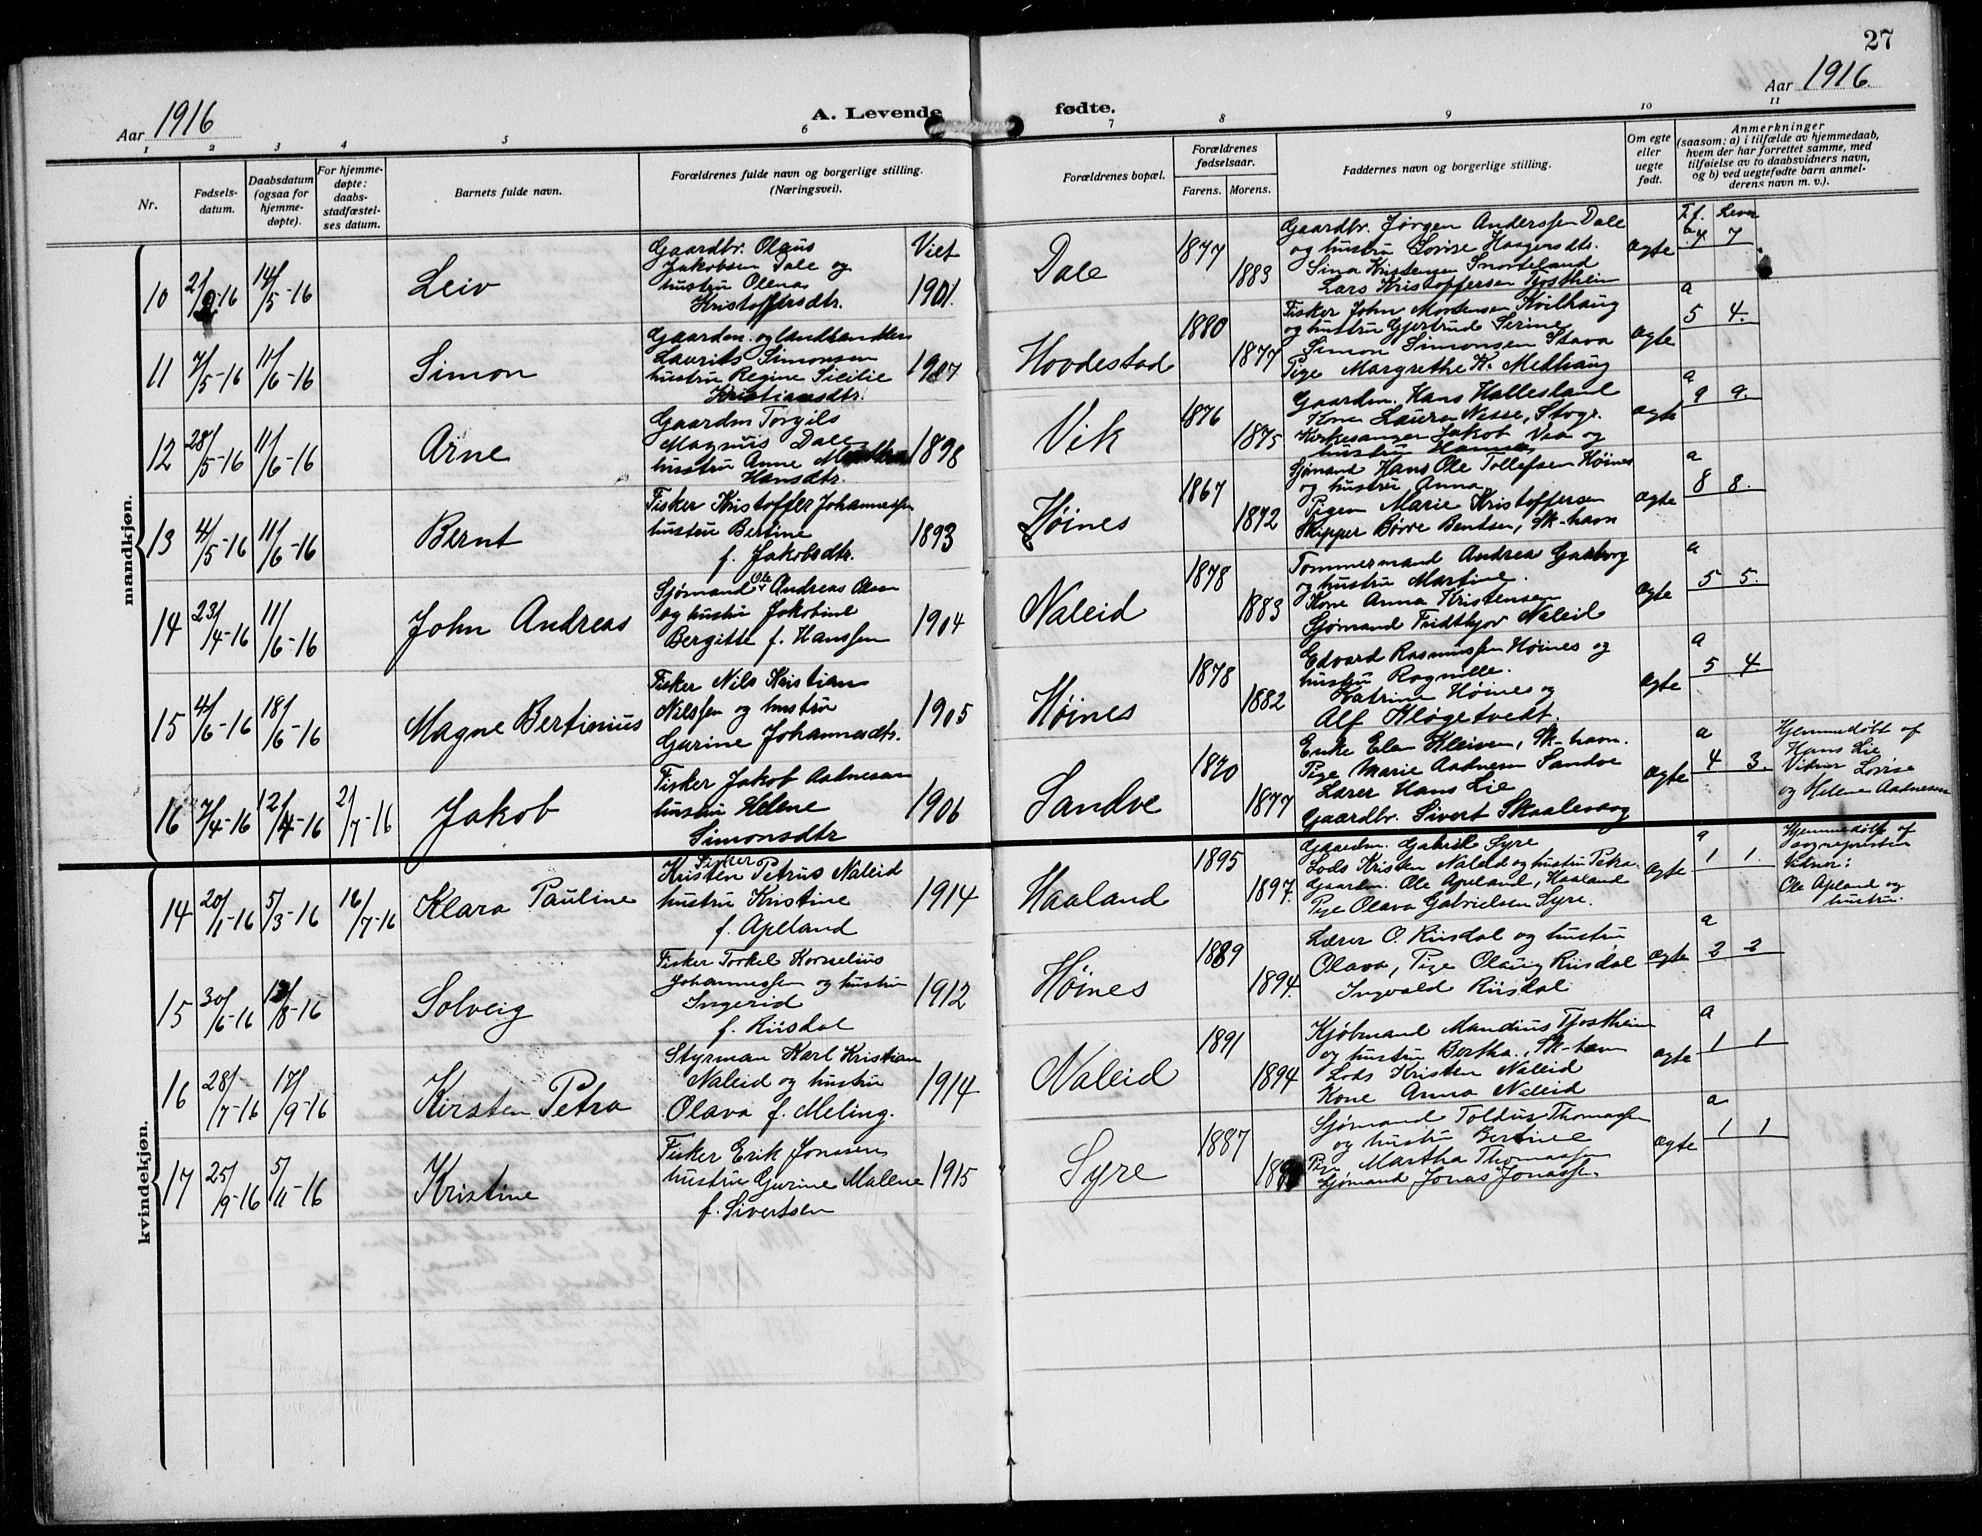 27
Aar 1916
A. Levende fødte.
Aar 1916.
1 2 3 4 5 6 7 8 9 10 11
Nr.
Fødsels-
datum.
Daabsdatum
(ogsaa for
hjemme-
døpte).
For hjemme-
døpte:
daabs-
stadfæstel-
ses datum.
Barnets fulde navn.
Forældrenes fulde navn og borgerlige stilling.
(Næringsvei).
Forældrenes bopæl.
Forældrenes
fødselsaar.
Farens. Morens.
Faddernes navn og borgerlige stilling.
Om egte
eller
uegte
født.
Anmerkninger
(saasom: a) i tilfælde av hjemmedaab,
hvem der har forrettet samme, med
tilføielse av to daabsvidners navn,
og b) ved uegtefødte barn anmel-
derens navn m. v.).
mandkjøn.
10 14/5-16 Leiv
Gaardbr. Olaus
Jakobsen Dale og
hustru Olena
Kristoffersdtr.
Viet
1901.
Dale 1877 1883
Gaardbr. Jørgen Anderssen Dale
og hustru Lovise Haagensdtr.
Sina Kristensen Snorteland
Lars Kristoffersen Tjostheim
ægte
Lever
7
11 7/5-16 11/6-16 Simon
Gaardm. og landhandler
Laurits Simonsen
hustru Regine Sicilie
Kristiansdtr.
1907
Hovdestad 1880 1877
Fisker John Mordensen Kvilhaug
og hustru Gjertrud Serine
Simon Simonsen Stava
Pige Margrethe K. Medhaug
ægte a 5 4.
12 28/5-16 11/6-16 Arne
Gaardm Torgils
Magnus Dale
hustru Anne Martha
Hansdtr.
1898
Vik 1876 1875
Gaardm. Hans Hallesland
Kone Laura Nesse, Stogr.
Kirkesanger Jakob Vea og
hustru Hanna
ægte a 9 9.
13 4/5-16 11/6-16 Bernt
Fisker Kristoffer Johannessen
hustru Bertine
f. Jakobsdtr.
1893
Høines 1867 1872
Sjømand Hans Ole Tollefsen Høines
og hustru Anna
Pigen Marie Kristoffersen
Skipper Børre Bentsen, Sk-havn
ægte a 8 8.
14 23/4-16 11/6-16 John Andreas
Sjømand Ole Andreas Olsen
og hustru Jakobine
Bergitte f. Hanssen
1904
Naleid 1878 1883
Tømmermand Andreas Gaaborg
og hustru Martine.
Kone Anna Kristensen
Sjømand Fridthjov Naleid
ægte a 5 5.
15 4/6-16 18/6-16 Magne Bertinius
Fisker Nils Kristian
Nilssen og hustru
Gurine Johannesdtr.
1905
Høines 1878 1882
Edvard Rasmussen Høines og
hustru Ragnille.
Katrine Høines og
Alf Kløgetvedt.
ægte a 5 4.
16 7/4-16 12/4-16 2/7-16 Jakob
Fisker Jakob Aadnesen
hustru Helene
Simonsdtr
1906
Sandve 1870 1877
Enke Elen Kleiven, Sk-havn.
Pige Marie Aadnesen Sandve
Lærer Hans Lie
Gaardbr. Sivert Skaalevaag
ægte a 4 3.
Hjemmedøbt af
Hans Lie
Vidner Lovise
og Helene Aadnesen
kvindekjøn.
14 20/1-16 5/3-16 16/7-16 Klara Pauline
Fisker
Kristen Petrus Naleid
hustru Kristine
f. Apeland
1914
Haaland 1895 1897.
Gaardm. Gabriel Syre
Lods Kristen Naleid og hustru Petra.
Gaardm. Ole Apeland, Haaland
Pige Olava Gabrielsen Syre.
ægte a 1 1.
Hjemmedøbt af
sognepresten
Vidner:
Ole Apeland og
hustru.
15 30/6-16 13/8-16 Solveig
Fisker Torkel Kornelius
Johannessen og hustru
Ingerid
f. Riisdal
1912
Høines 1889 1894.
Lærer O. Riisdal og hustru
Olava, Pige Olaug Riisdal
Ingvald Riisdal
ægte a 2 2
16 28/7-16 17/9-16 Kirsten Petra
Styrman Karl Kristian
Naleid og hustru
Olava f. Meling.
1914
Naleid 1891 1894
Kjøbmand Mandius Tjostheim
og hustru Bertha, Sk-havn
Lods Kristen Naleid
Kone Anna Naleid
ægte a 1 1
17 25/9-16 5/11-16 Kristine
Fisker Erik Jonassen
hustru Gurine Malene
f. Sivertsen
1915
Syre 1887
Sjømand Toldus Thomassen
og hustru Bertine
Pige Martha Thomassen
Sjømand Jonas Jonassen
ægte a 1 1